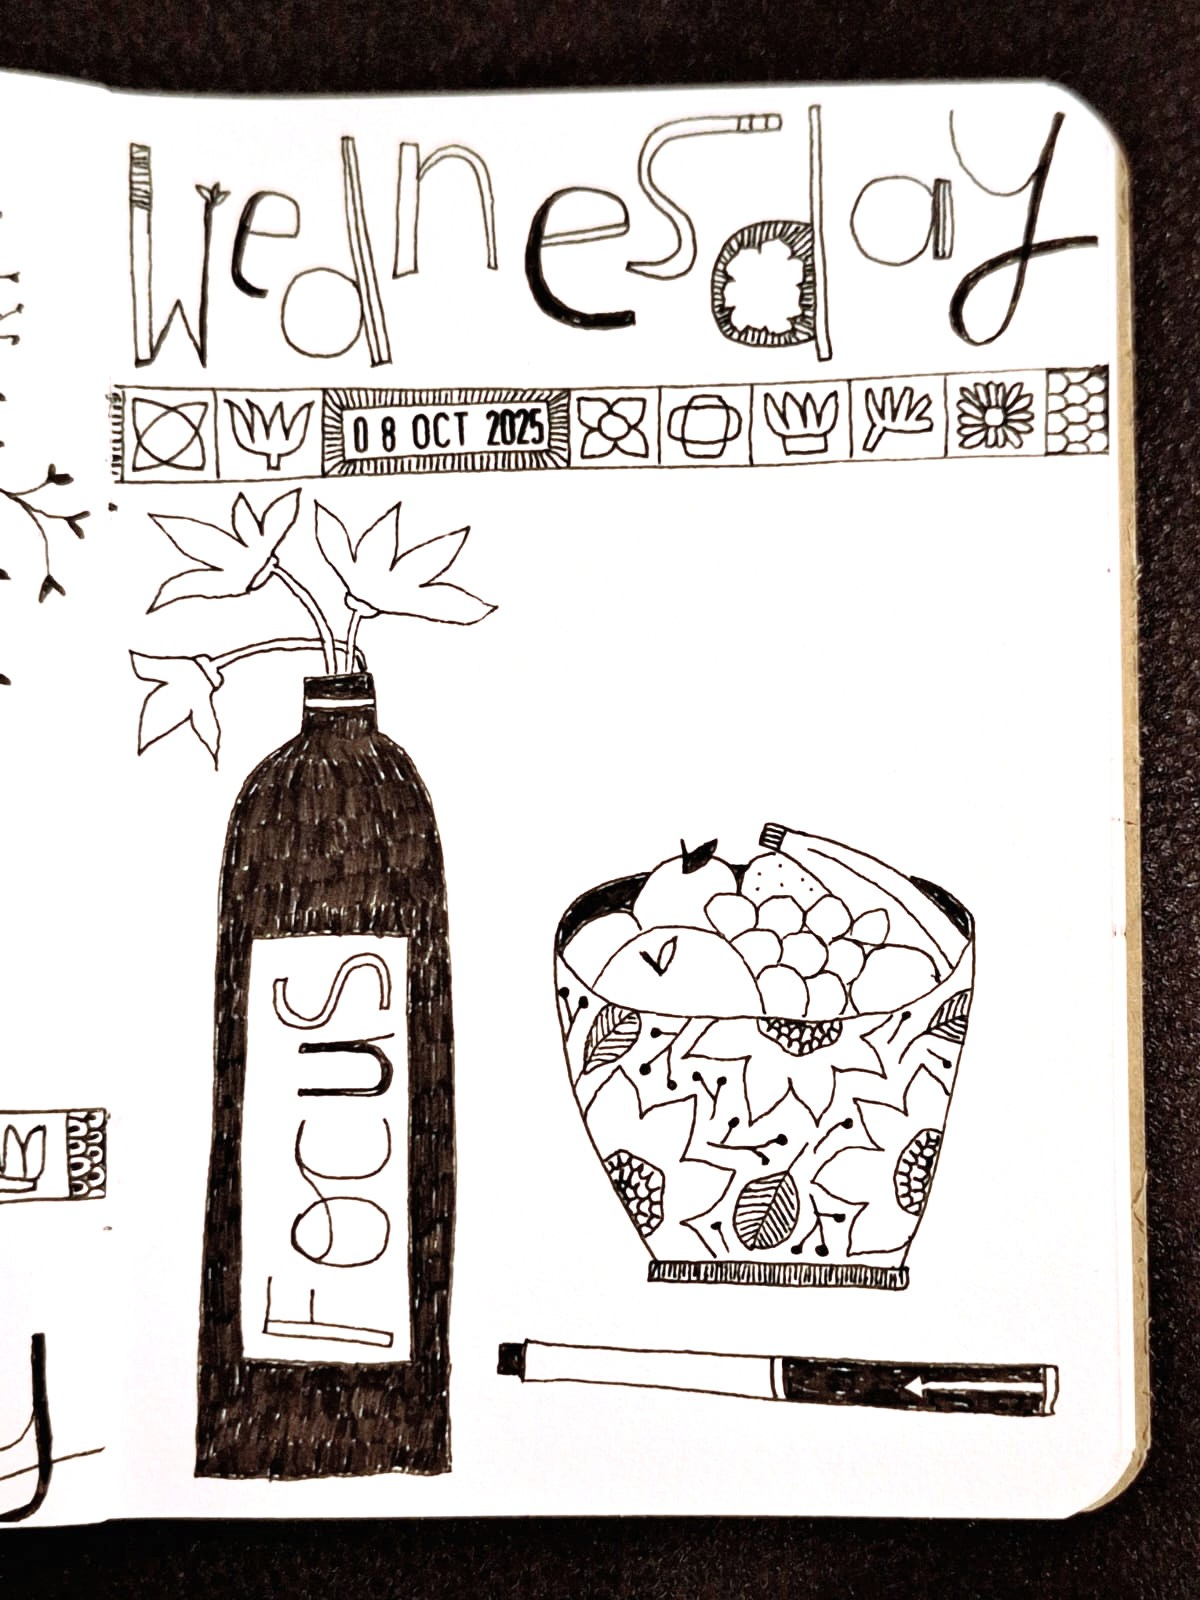 Wednesday
08 OCT 2025
FOCUS